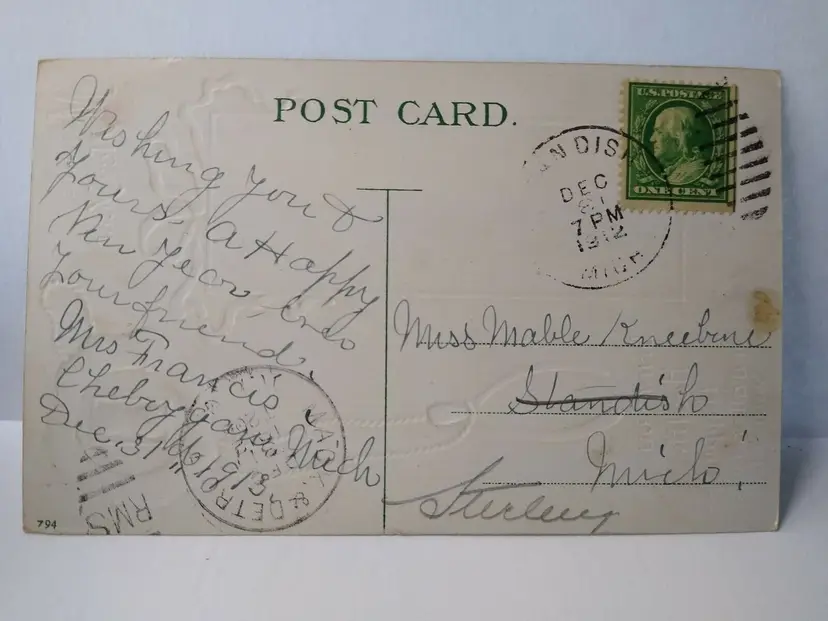 POST CARD.
U.S. POSTAGE
ONE CENT
ANDISH
DEC
31
7 PM
1912
MICH
Wishing you &
Yours, a Happy
New Year,
Your friend,
Mrs Francis
Cheboygan, Mich
Dec. 31"
Miss Mable Kneebone
Standish
Mich,
Sterling
& DETROIT
RMS
794